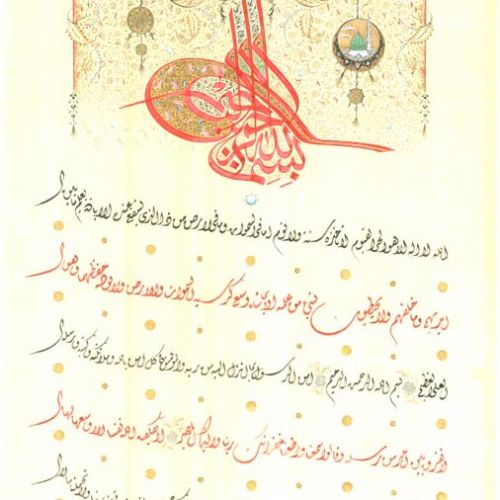 بسم الله الرحمن الرحيم
الله لا اله الا هو الحي القيوم لا تأخذه سنة ولا نوم له ما في السموات وما في الارض من ذا الذي يشفع عنده الا باذنه يعلم ما بين ا
يديهم وما خلفهم ولا يحيطون بشيء من علمه الا بما شاء وسع كرسيه السموات والارض ولا يؤده حفظهما وهو ا
لعلي العظيم بسم الله الرحمن الرحيم امن الرسول بما انزل اليه من ربه والمؤمنون كل امن بالله وملائكته وكتبه ورسله
لا نفرق بين احد من رسله وقالوا سمعنا واطعنا غفرانك ربنا واليك المصير لا يكلف الله نفسا الا وسعها لها ما